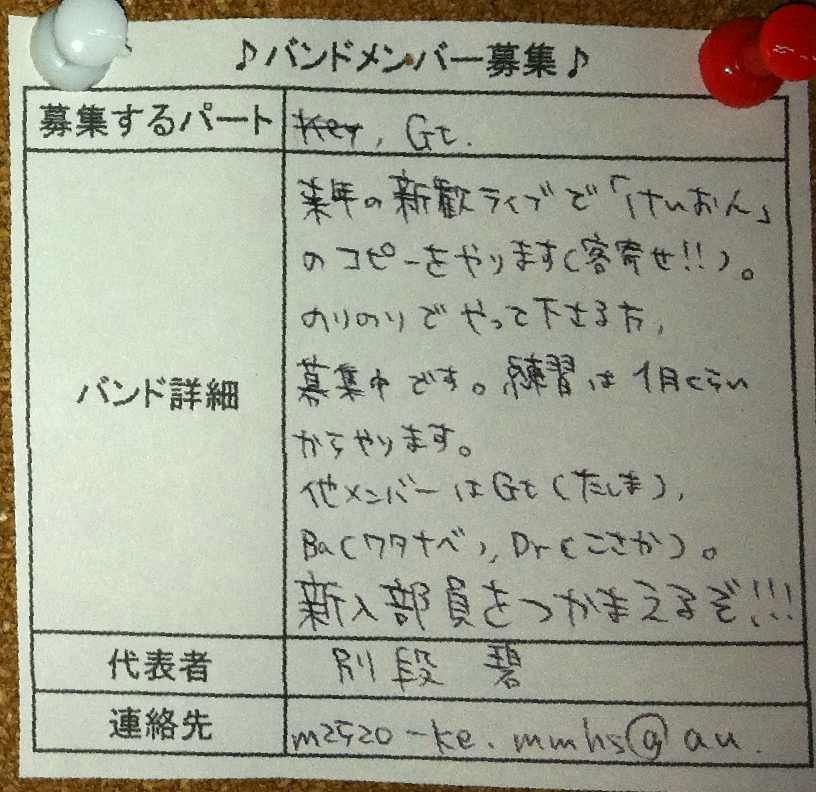 ♪バンドメンバー募集♪
募集するパート
Key, Gt.
バンド詳細
来年の新歓ライブで「けいおん」
のコピーをやります(客寄せ!!)。
のりのりでやって下さる方,
募集中です。練習は1月くらい
からやります。
他メンバーはGt(たしま),
Ba(ワタナベ), Dr(こさか)。
新入部員をつかまえるぞ!!!
代表者
別段 碧
連絡先
m2520-ke.mmhs@au.